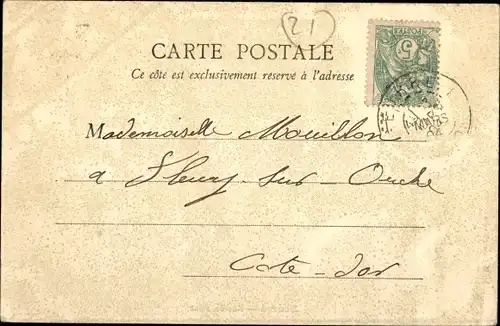 (21)
CARTE POSTALE
Ce côté est exclusivement reservé à l'adresse
5
MARS
04
Mademoiselle Mouillon
a Fleury-sur-Ouche
Cote-d'or